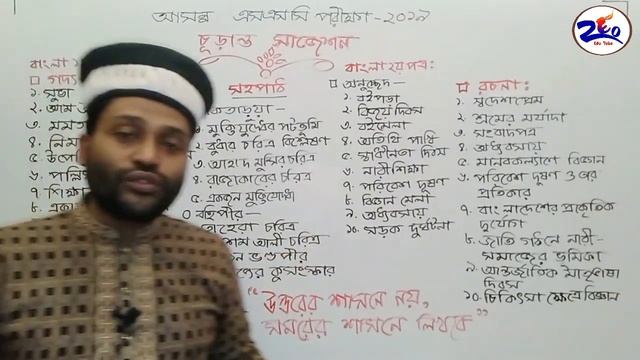 আসন্ন এসএসসি পরীক্ষা-২০২৯
চূড়ান্ত সাজেশন
বাংলা ১
গদ্য
১. সুভা
২. আম
৩. মমতা
৬. পল্লি
৭. শিক্ষা
সহপাঠ
কাকতাড়ুয়া—
১. মুক্তিযুদ্ধের পটভূমি
২. বুধার চরিত্র বিশ্লেষণ
৩. আহাদ মুন্সির চরিত্র
৪. রাজাকারের চরিত্র
৫. একজন মুক্তিযোদ্ধা
বহিপীর—
তাহেরা চরিত্র
হাশেম আলী চরিত্র
ভণ্ডপীর
কুসংস্কার
বাংলা ২য় পত্র:
অনুচ্ছেদ—
১. বইপড়া
২. বিজয় দিবস
৩. বইমেলা
৪. অতিথি পাখি
৫. স্বাধীনতা দিবস
৬. নারীশিক্ষা
৭. পরিবেশ দূষণ
৮. বিজ্ঞান মেলা
৯. অধ্যবসায়
১০. সড়ক দুর্ঘটনা
রচনা:
১. স্বদেশপ্রেম
২. শ্রমের মর্যাদা
৩. সংবাদপত্র
৪. অধ্যবসায়
৫. মানবকল্যাণে বিজ্ঞান
৬. পরিবেশ দূষণ ও তার
প্রতিকার
৭. বাংলাদেশের প্রাকৃতিক
দুর্যোগ
৮. জাতি গঠনে নারী-
সমাজের ভূমিকা
৯. আন্তর্জাতিক মাতৃভাষা
দিবস
১০. চিকিৎসা ক্ষেত্রে বিজ্ঞান
"উত্তরের শাসনে নয়,
সময়ের শাসনে লিখবে"
Edu Tube